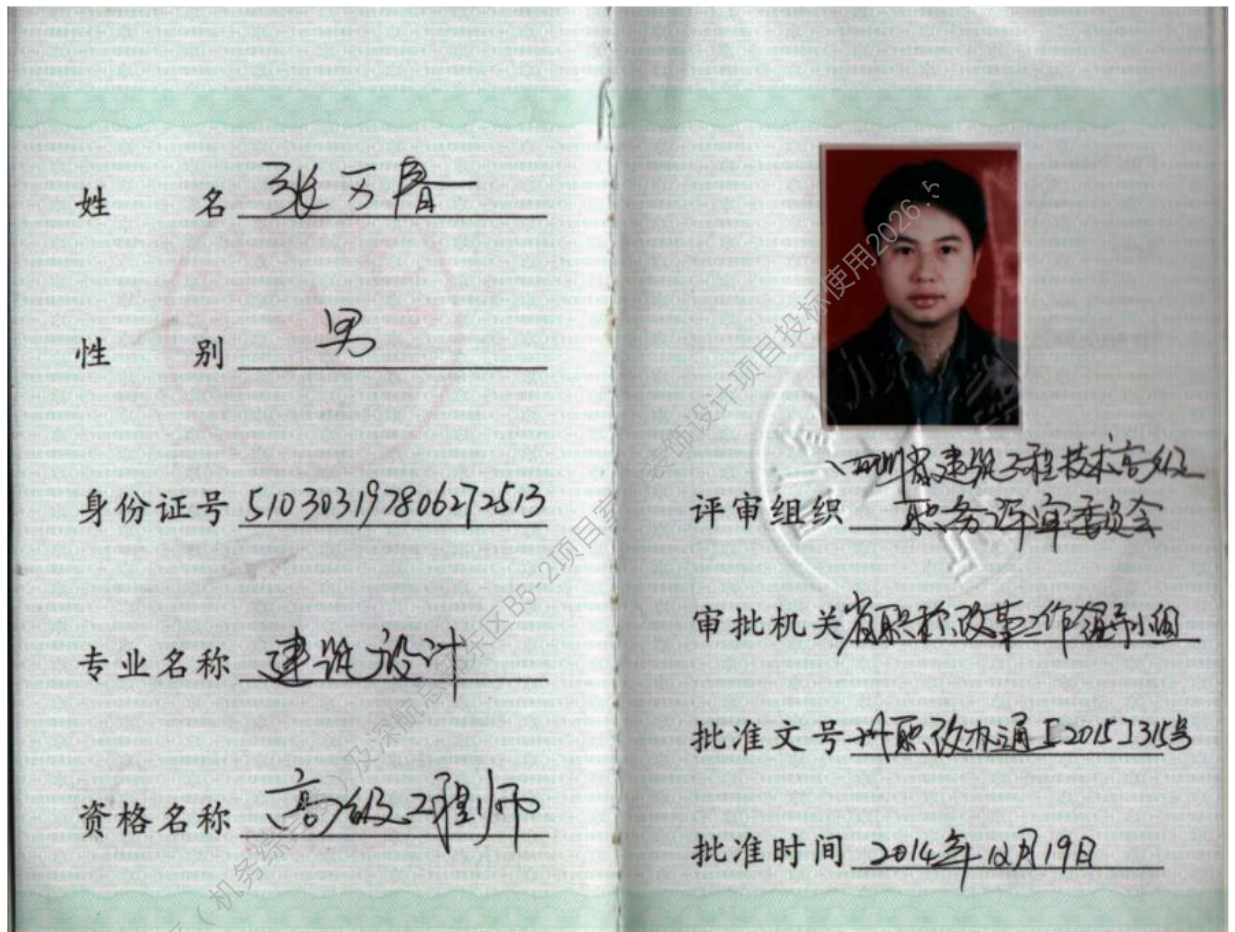 姓 名 张万春
性 别 男
身份证号 510303197806272513
专业名称 建筑设计
资格名称 高级工程师
四川省建筑工程技术高级
评审组织 职务评审委员会
审批机关 省职称改革工作领导小组
批准文号 川职改办通[2015]315号
批准时间 2014年12月19日
（机务综
及深航总
东区B5-2项目室
装饰设计项目投标使用2026.5